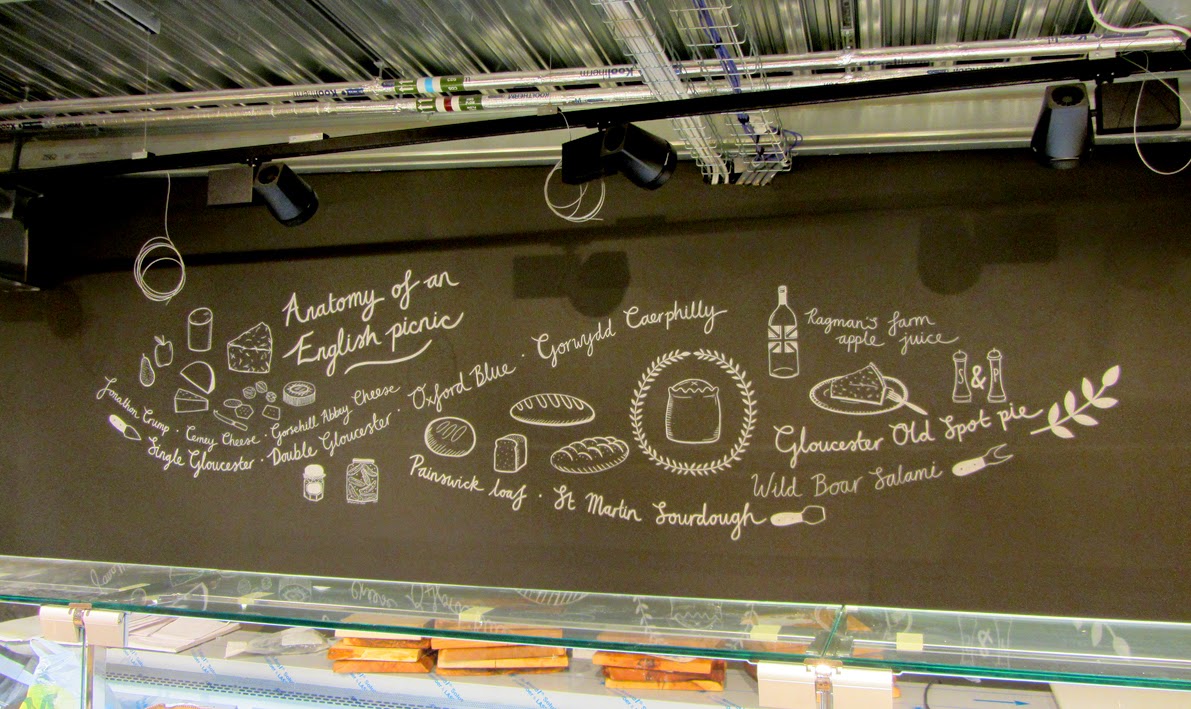 Kooltherm
Kooltherm
Anatomy of an
English picnic
Jonathon Crump · Cerney Cheese · Gorsehill Abbey Cheese
Single Gloucester · Double Gloucester · Oxford Blue · Gorwydd Caerphilly
Painswick loaf · St Martin Sourdough
Ragman's farm
apple juice
S & P
Gloucester Old Spot pie
Wild Boar Salami